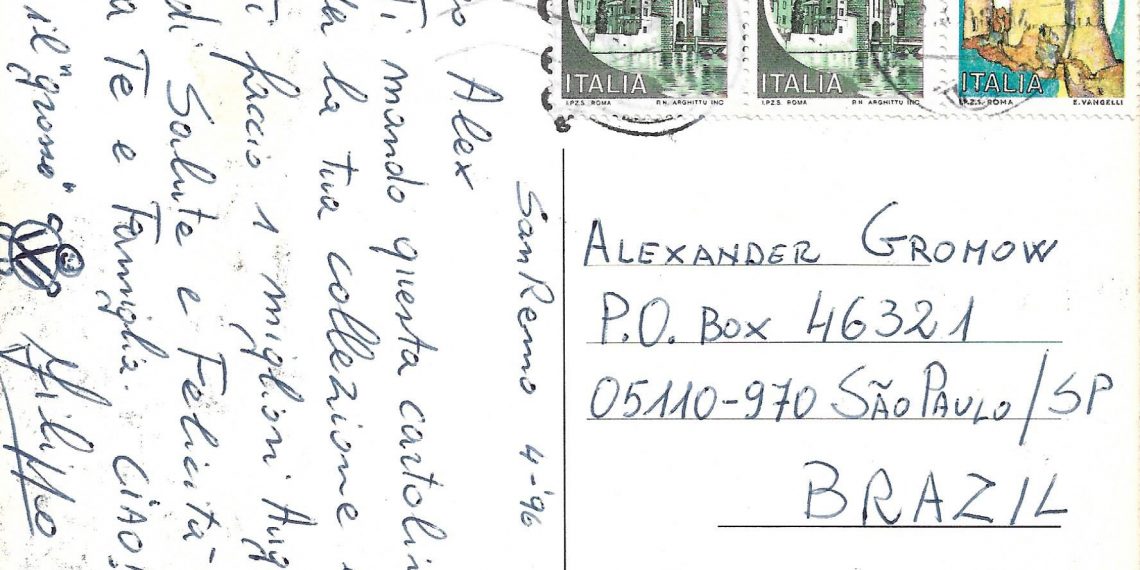 ITALIA
I.P.Z.S. ROMA P.N. ARGHITTU INC
ITALIA
I.P.Z.S. ROMA P.N. ARGHITTU INC
ITALIA
I.P.Z.S. ROMA E. VANGELLI
San Remo 4-'96
Alex
Ti mando questa cartolin
la tua collezione
faccio i migliori Aug
di Salute e Felicità
a Te e Famiglia. CIAO!
il "grosso"
Filippo
ALEXANDER GROMOW
P.O. BOX 46321
05110-970 SÃO PAULO/SP
BRAZIL